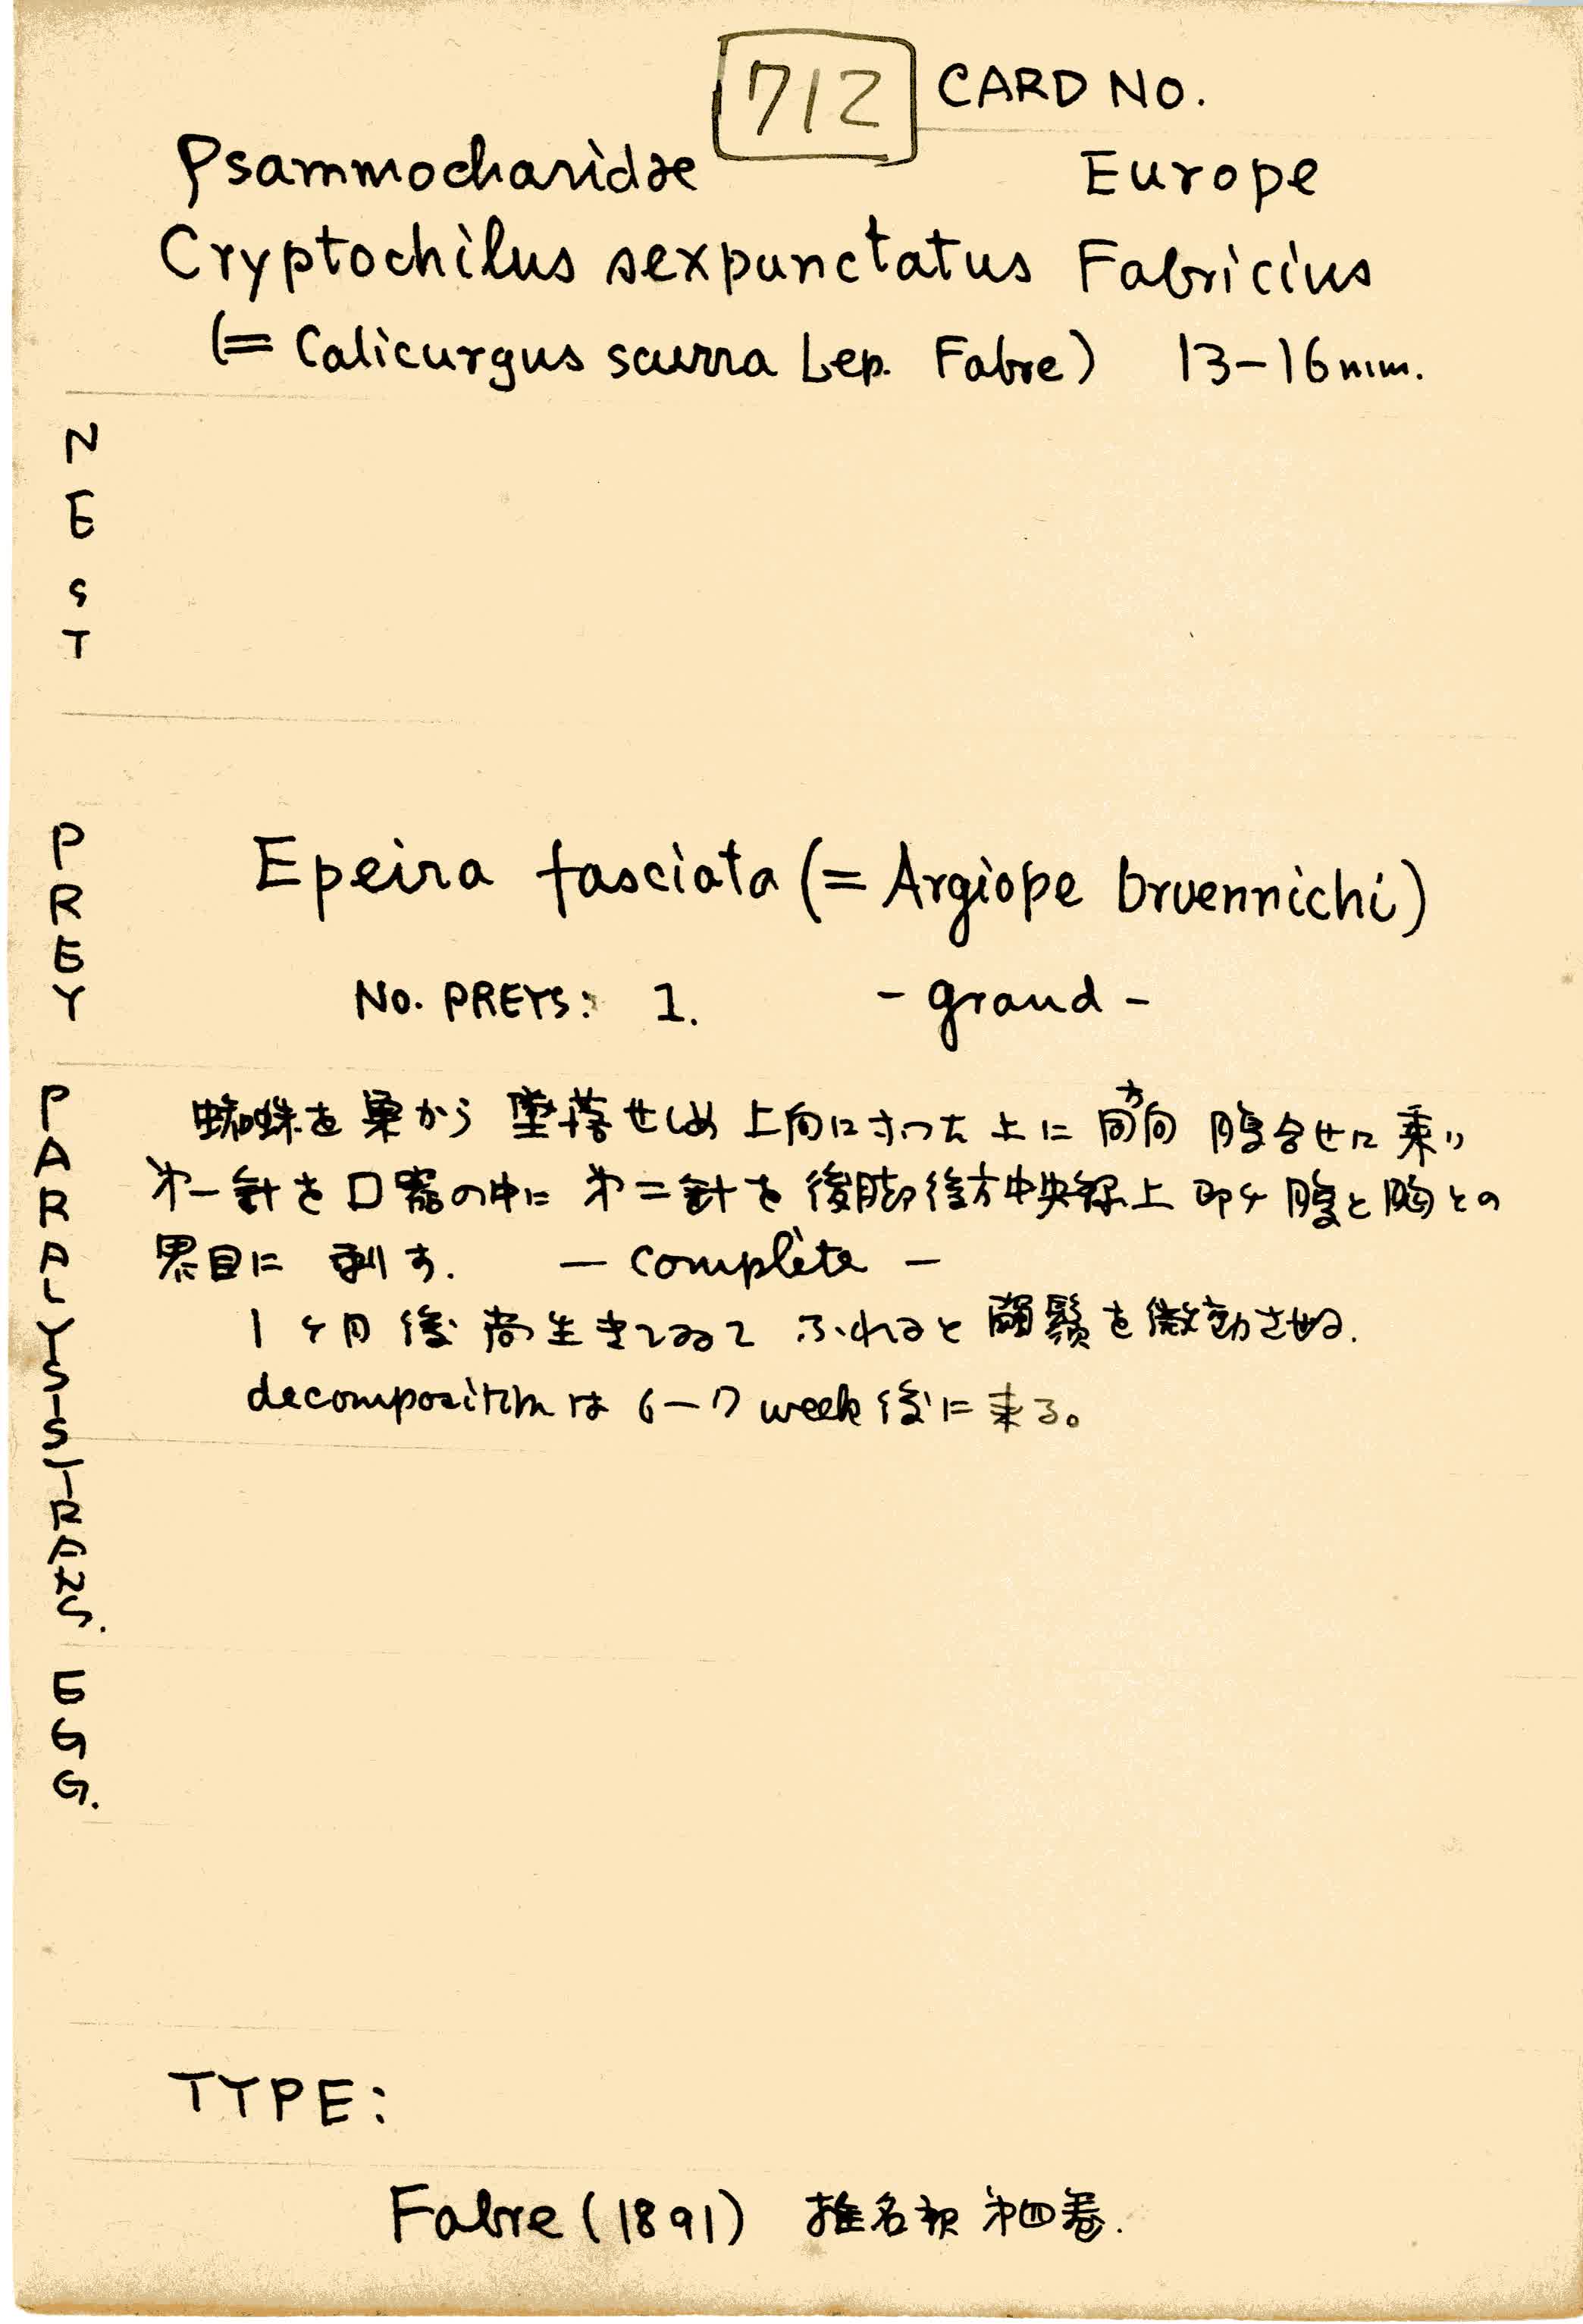 712 CARD NO.
Psammocharidae Europe
Cryptochilus sexpunctatus Fabricius
(= Calicurgus scurra Lep. Fabre) 13-16 mm.
NEST
PREY
Epeira fasciata (= Argiope bruennichi)
NO. PREYS: 1. - grand -
PARALYSIS/TRANS.
蜘蛛を巣から 墜落せしめ 上向になった上に 同方向 腹合せに 乗り
才一針を口器の中に 才二針を後脚後方中央線上 即チ腹と胸との
界目に 刺す. — complète —
1ケ月後尚生きてゐて ふれると 觸鬚を微動させる.
decomposition は 6-7 week 後に来る。
EGG.
TYPE:
Fabre (1891) 椎名訳 才四巻.